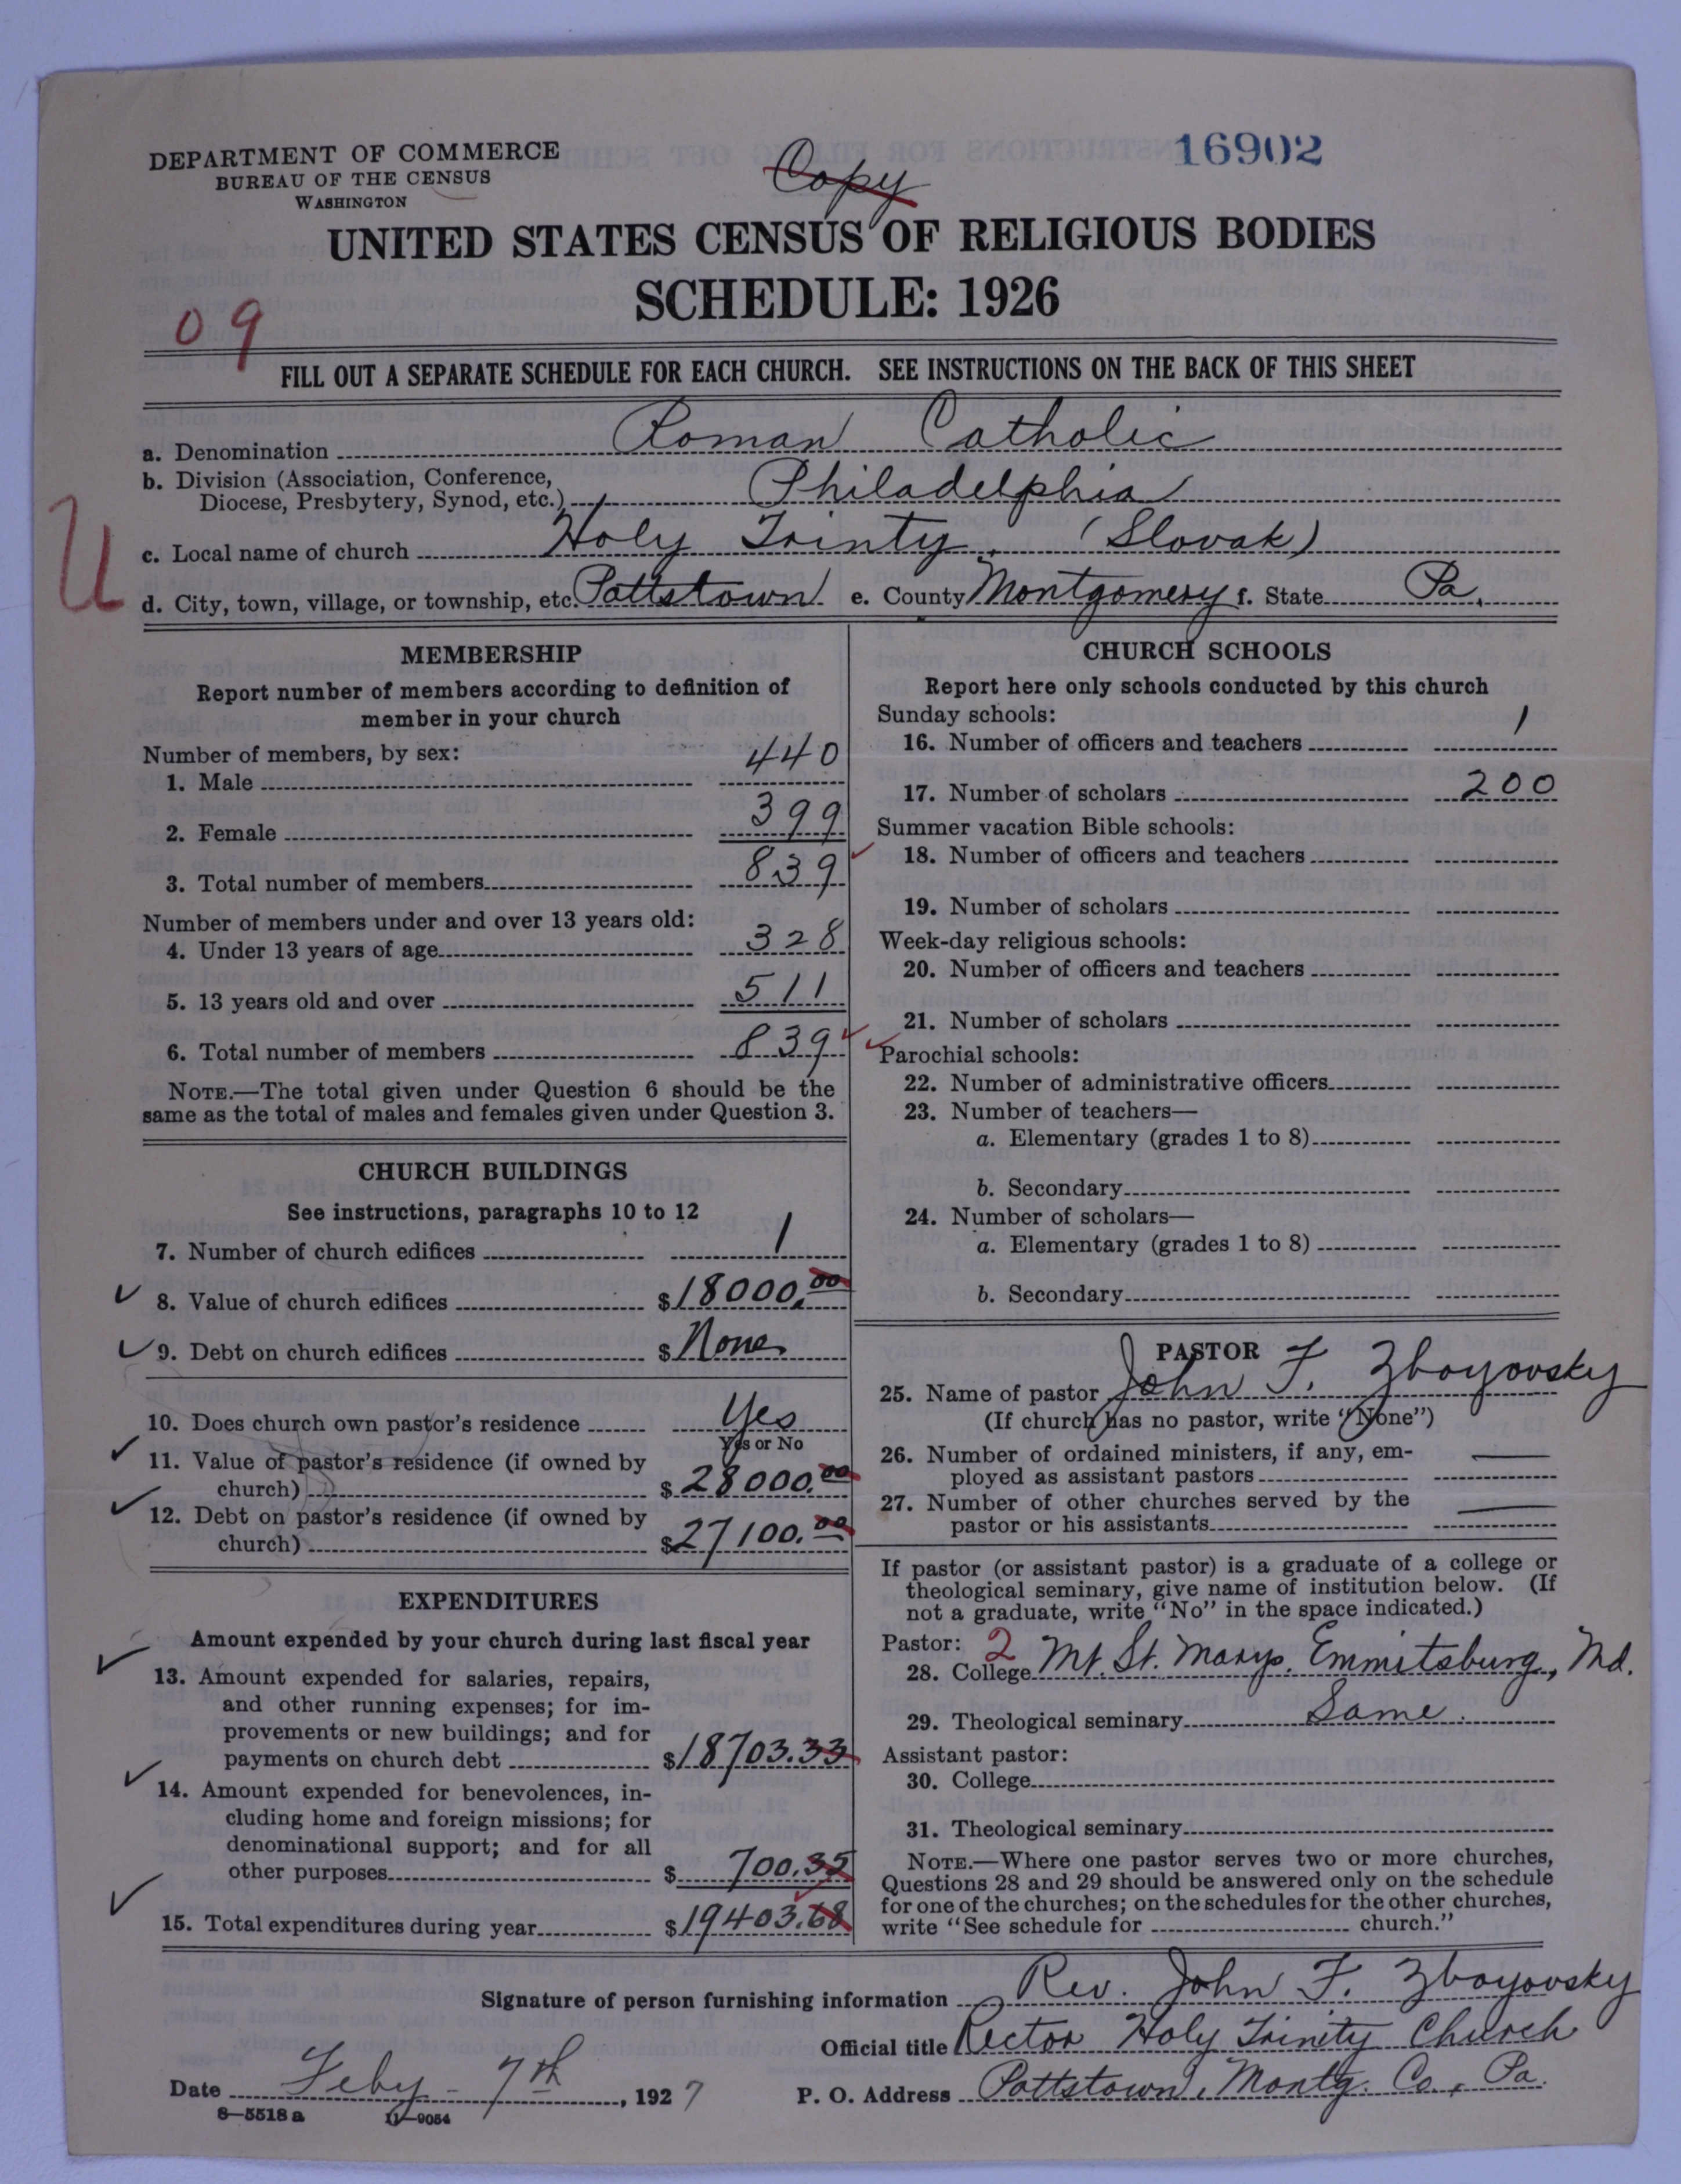 DEPARTMENT OF COMMERCE
BUREAU OF THE CENSUS
WASHINGTON
Copy
16902
UNITED STATES CENSUS OF RELIGIOUS BODIES
SCHEDULE: 1926
09
FILL OUT A SEPARATE SCHEDULE FOR EACH CHURCH. SEE INSTRUCTIONS ON THE BACK OF THIS SHEET
a. Denomination Roman Catholic
b. Division (Association, Conference,
Diocese, Presbytery, Synod, etc.) Philadelphia
U
c. Local name of church Holy Trinty. (Slovak)
d. City, town, village, or township, etc. Pottstown e. County Montgomery f. State Pa.
MEMBERSHIP
Report number of members according to definition of
member in your church
Number of members, by sex:
1. Male 440
2. Female 399
3. Total number of members 839
Number of members under and over 13 years old:
4. Under 13 years of age 328
5. 13 years old and over 511
6. Total number of members 839
NOTE.—The total given under Question 6 should be the
same as the total of males and females given under Question 3.
CHURCH BUILDINGS
See instructions, paragraphs 10 to 12
7. Number of church edifices 1
8. Value of church edifices $18000.00
9. Debt on church edifices $None
10. Does church own pastor's residence Yes
Yes or No
11. Value of pastor's residence (if owned by
church) $28000.00
12. Debt on pastor's residence (if owned by
church) $27100.00
EXPENDITURES
Amount expended by your church during last fiscal year
13. Amount expended for salaries, repairs,
and other running expenses; for im-
provements or new buildings; and for
payments on church debt $18703.33
14. Amount expended for benevolences, in-
cluding home and foreign missions; for
denominational support; and for all
other purposes $700.35
15. Total expenditures during year $19403.68
CHURCH SCHOOLS
Report here only schools conducted by this church
Sunday schools:
16. Number of officers and teachers 1
17. Number of scholars 200
Summer vacation Bible schools:
18. Number of officers and teachers
19. Number of scholars
Week-day religious schools:
20. Number of officers and teachers
21. Number of scholars
Parochial schools:
22. Number of administrative officers
23. Number of teachers—
a. Elementary (grades 1 to 8)
b. Secondary
24. Number of scholars—
a. Elementary (grades 1 to 8)
b. Secondary
PASTOR
25. Name of pastor John F. Zboyovsky
(If church has no pastor, write "None")
26. Number of ordained ministers, if any, em-
ployed as assistant pastors —
27. Number of other churches served by the
pastor or his assistants —
If pastor (or assistant pastor) is a graduate of a college or
theological seminary, give name of institution below. (If
not a graduate, write "No" in the space indicated.)
Pastor: 2
28. College Mt. St. Marys. Emmitsburg, Md.
29. Theological seminary Same.
Assistant pastor:
30. College
31. Theological seminary
NOTE.—Where one pastor serves two or more churches,
Questions 28 and 29 should be answered only on the schedule
for one of the churches; on the schedules for the other churches,
write "See schedule for church."
Signature of person furnishing information Rev. John F. Zboyovsky
Official title Rector Holy Trinity Church
Date Feby - 7th, 1927 P. O. Address Pottstown, Montg. Co., Pa.
8—5518a 11—9054